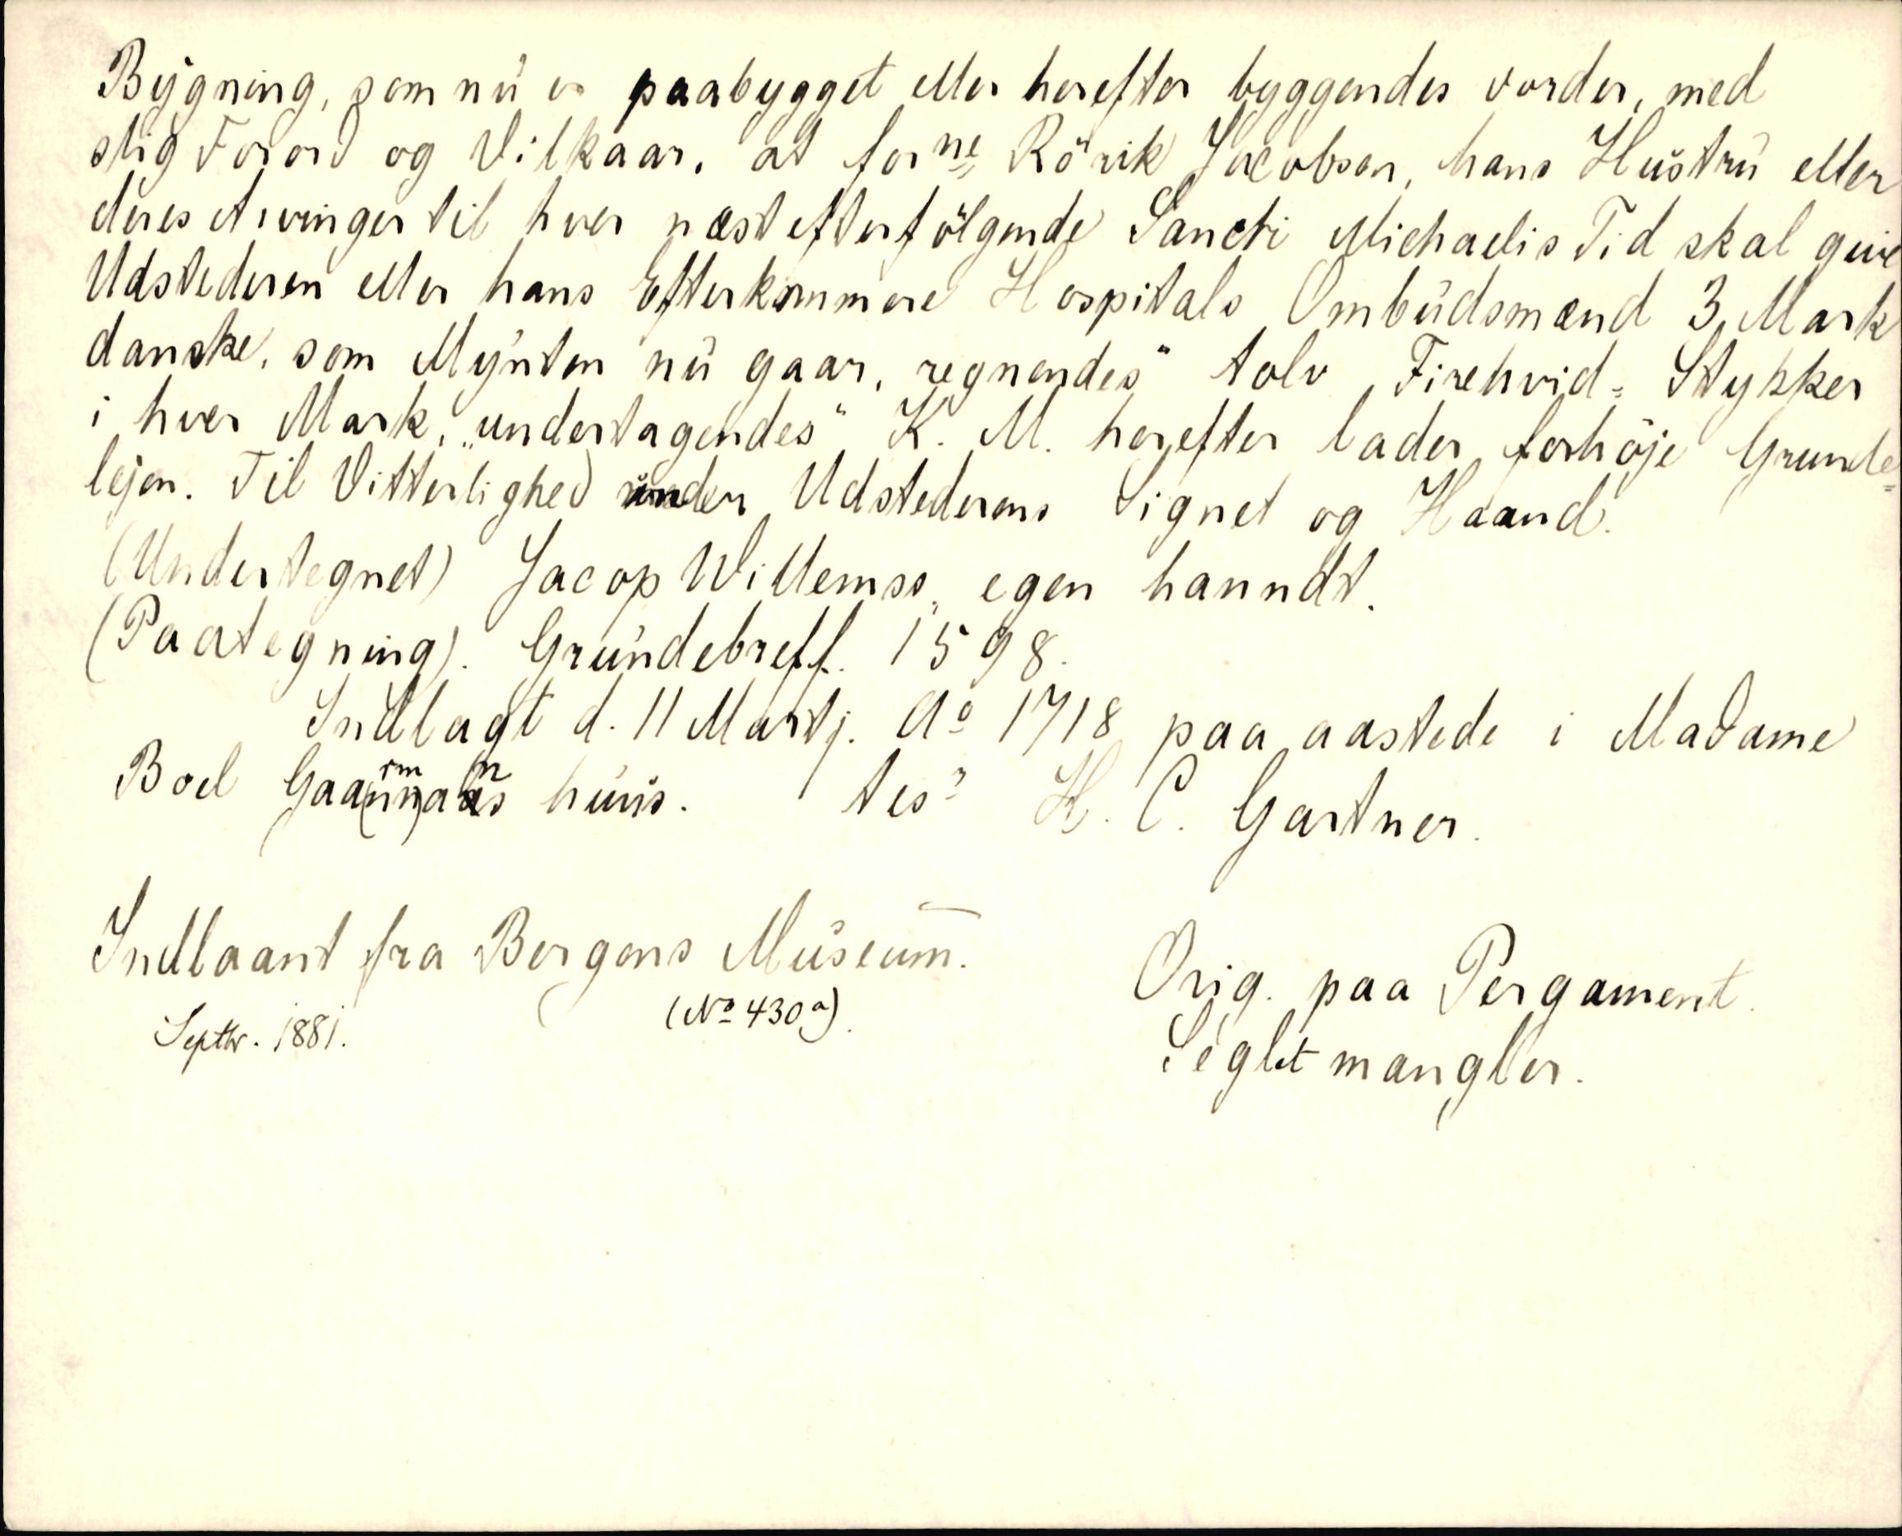 Bygning, som nu er paabygget eller herefter byggendes vorder, med
slig Forord og Vilkaar, at forne. Rörik Jacobsen, hans Hustru eller
deres Arvinger til hver næst efterfölgende Sancti Michaelis Tid skal give
Udstederen eller hans Efterkommere Hospitals Ombudsmænd 3 Mark
danske, som Mynten nu gaar, regnendes" tolv Firehvid= Stykker
i hver Mark, „undertagendes" K. M. herefter lader forhöje Grunde=
lejen. Til Vitterlighed under Udstederens Signet og Haand.
(Undertegnet) Jacop Willemss. egen hanndt.
(Paategning). Grundebreff. 1598.
Indlagt d. 11 Martj. Aº 1718 paa aastede i Madame
Boel Gaarmans huus. tes² H. C. Gartner.
Indlaant fra Bergens Museum.
Septbr. 1881. (Nº 430 a).
Orig. paa Pergament.
Seglet mangler.